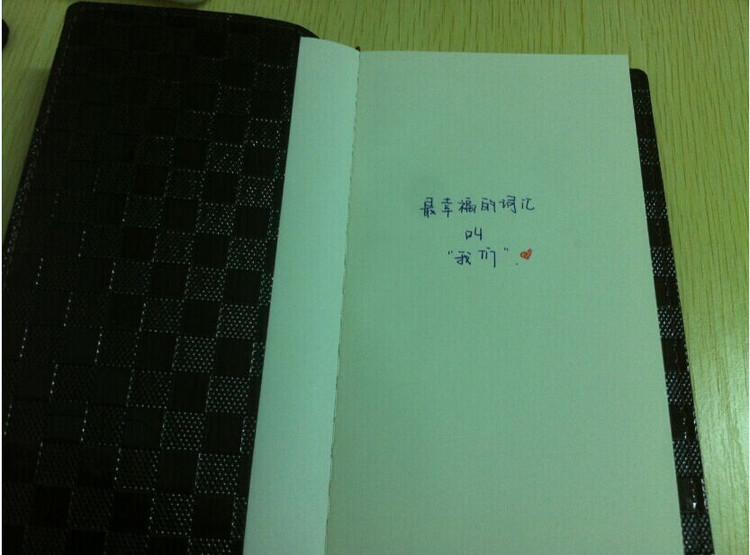 最幸福的词汇
叫
“我们”.